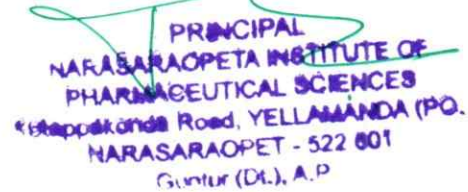 PRINCIPAL
NARASARAOPETA INSTITUTE OF
PHARMACEUTICAL SCIENCES
Kotappakonda Road, YELLAMANDA (PO.
NARASARAOPET - 522 601
Guntur (Dt.), A.P